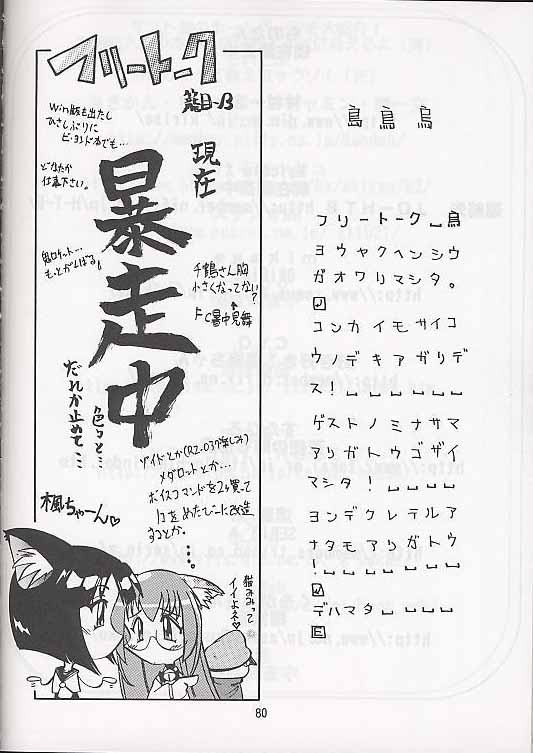 フリートーク
籠目-B
Win版も出たし
ひさしぶりに
ビヨンド本でも…
どなたか
仕事下さい。
鬼ロケット…
もっとがんばる。
現在
暴走中
千鶴さん胸
小さくなってない?
FC暑中見舞
色々と…
だれか止めて…
ゾイドとか(RZ-037楽しみ)
メダロットとか…
ボイスコマンドを2ヶ買って
1コをめたびーに改造
するとか。
…。
楓ちゃーん♡
猫みみって
イイよネ♡
島 鳥 烏
フリートーク␣鳥
ヨウヤクヘンシウ
ガオワリマシタ。
コンカイモサイコ
ウノデキアガリデ
ス!␣␣␣␣␣␣
ゲストノミナサマ
アリガトウゴザイ
マシタ!␣␣␣␣
ヨンデクレテルア
ナタモアリガトウ
!␣␣␣␣␣␣␣
デハマタ␣␣␣␣
80